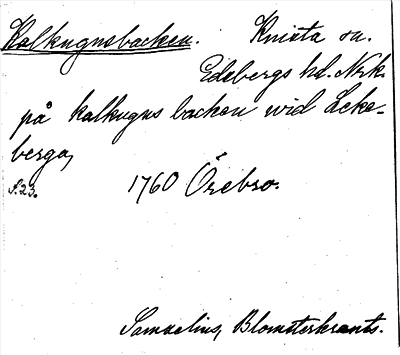 Kalkugnsbacken. Knista sn.
Edsbergs hd. Nrk.
på kalkugns backen wid Leke-
berga,
S. 23. 1760 Örebro.
Samuelius, Blomsterkrants.